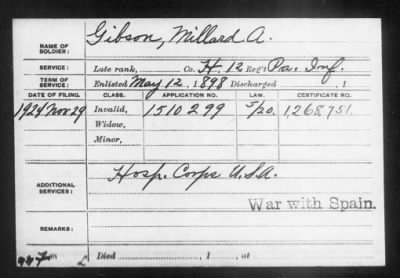 NAME OF SOLDIER: Gibson, Millard A.
SERVICE: Late rank, Co. H. 12 Reg't Pa. Inf.
TERM OF SERVICE: Enlisted May 12, 1898 Discharged , 1
DATE OF FILING. CLASS. APPLICATION NO. LAW. CERTIFICATE NO.
1924 Nov 29 Invalid, 1510299 1,268,751.
Widow,
Minor,
ADDITIONAL SERVICES: Hosp. Corps U.S.A.
War with Spain.
REMARKS:
Died , 1 , at